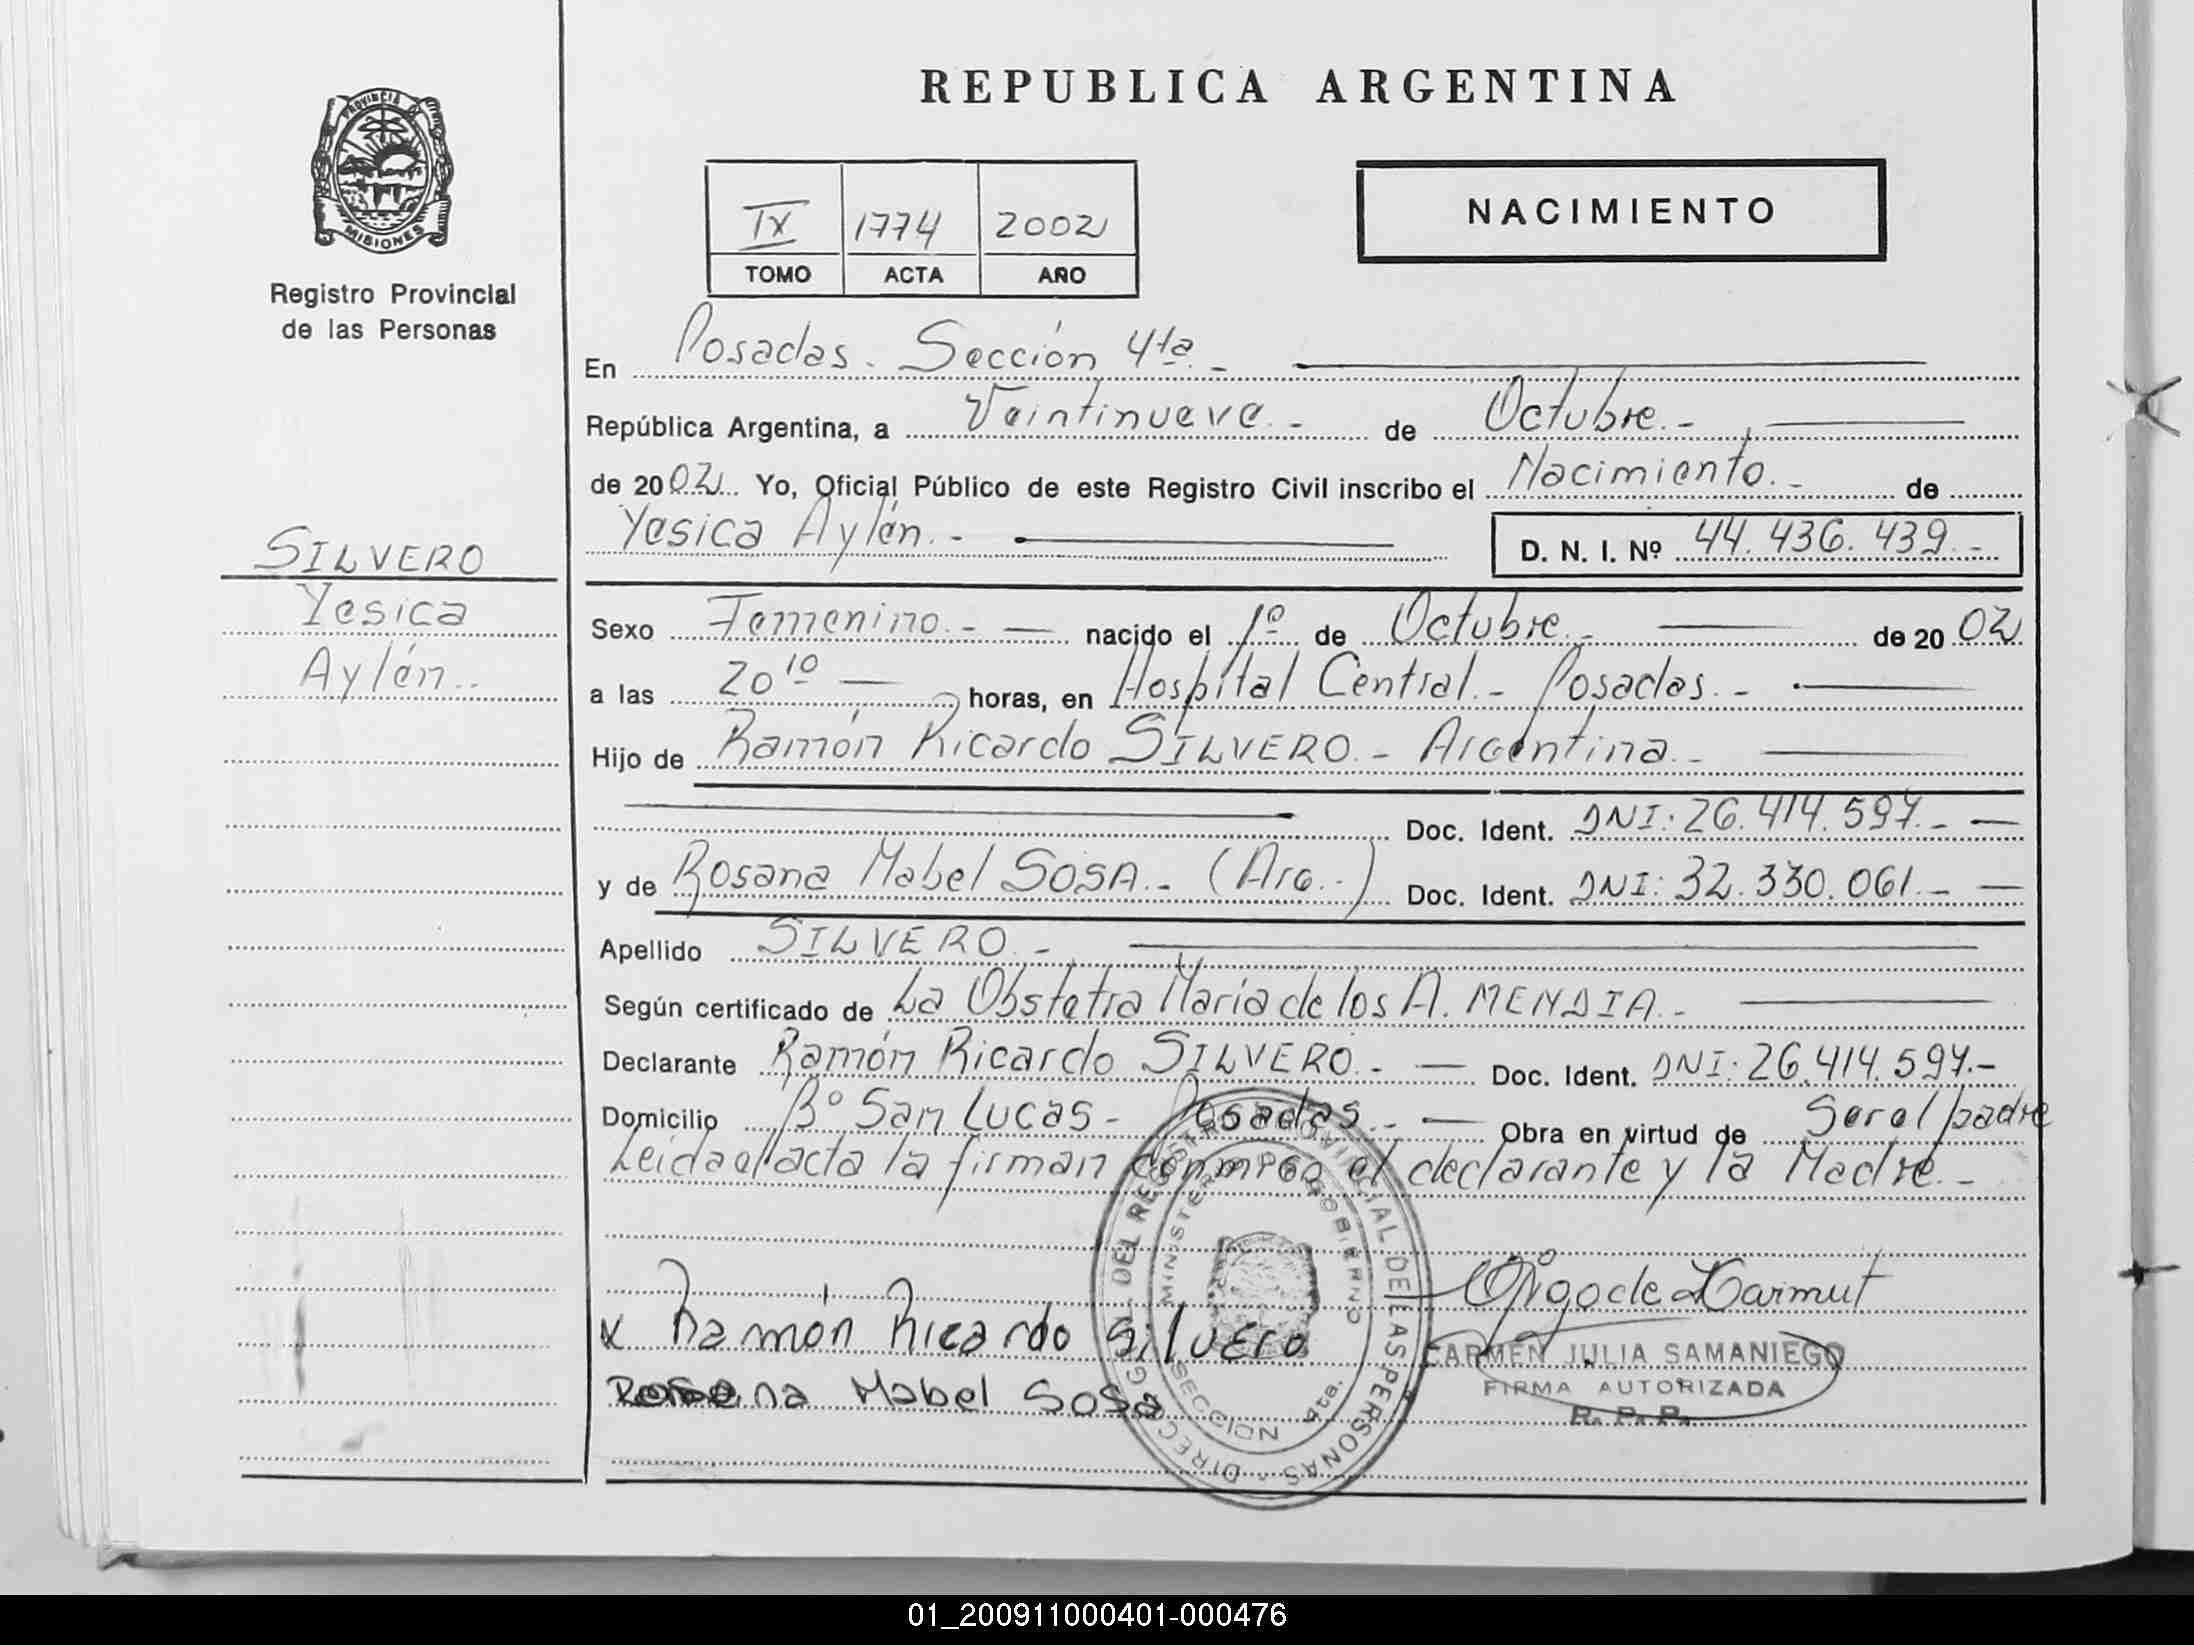 REPUBLICA ARGENTINA
PROVINCIA
MISIONES
Registro Provincial
de las Personas
IX 1774 2002
TOMO ACTA AÑO
NACIMIENTO
En Posadas. Sección 4ta.-
República Argentina, a Veintinueve.- de Octubre.-
de 2002 Yo, Oficial Público de este Registro Civil inscribo el Nacimiento.- de
Yesica Aylén.- D. N. I. Nº 44.436.439.-
SILVERO
Yesica
Aylén..
Sexo Femenino.- nacido el 1º de Octubre.- de 2002
a las 20 10 horas, en Hospital Central.- Posadas.-
Hijo de Ramón Ricardo SILVERO.- Argentina.-
Doc. Ident. DNI: 26.414.597.-
y de Rosana Mabel SOSA.- (Arg.-) Doc. Ident. DNI: 32.330.061.-
Apellido SILVERO.-
Según certificado de La Obstetra María de los A. MENDIA.-
Declarante Ramón Ricardo SILVERO.- Doc. Ident. DNI: 26.414.597.-
Domicilio Bº San Lucas- Posadas.- Obra en virtud de Ser el padre
Leida el acta la firman conmigo el declarante y la Madre.-
DIRECC. GRAL. DEL REGISTRO PROVINCIAL DE LAS PERSONAS
MINISTERIO DE GOBIERNO
SECCION 4ta.
x Ramón Ricardo Silvero
Rosana Mabel Sosa
CARMEN JULIA SAMANIEGO
FIRMA AUTORIZADA
R. P. P.
01_200911000401-000476